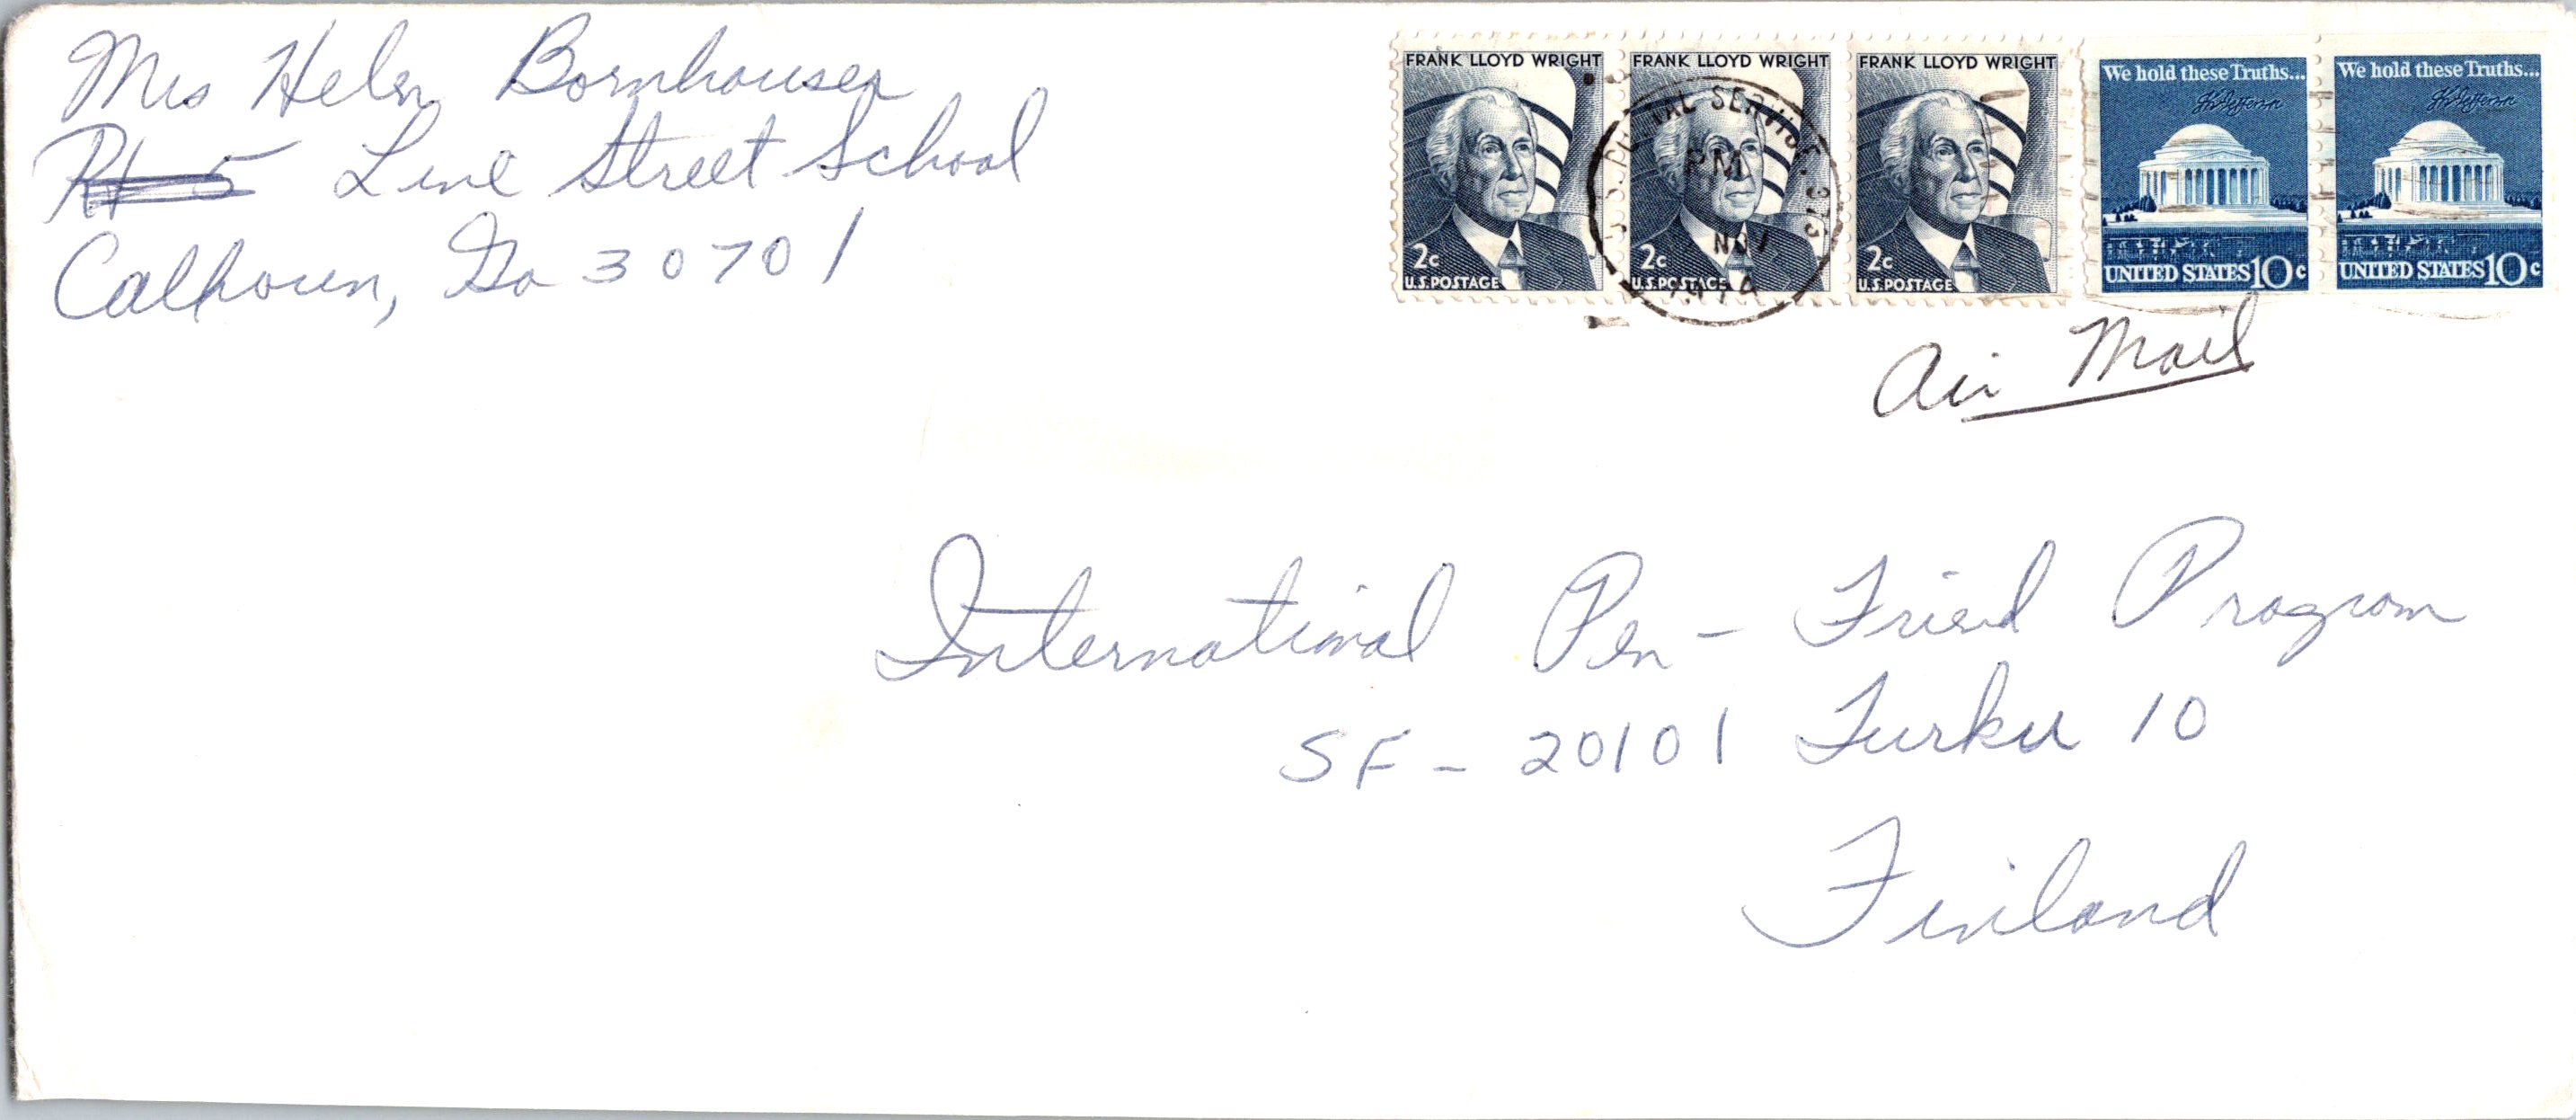 Mrs Helen Bornhauser
Rt 5 Line Street School
Calhoun, Ga 30701
FRANK LLOYD WRIGHT
2c
U.S.POSTAGE
FRANK LLOYD WRIGHT
2c
U.S.POSTAGE
FRANK LLOYD WRIGHT
2c
U.S.POSTAGE
We hold these Truths...
Th Jefferson
UNITED STATES 10c
We hold these Truths...
Th Jefferson
UNITED STATES 10c
U.S. POSTAL SERVICE. 373
PM
NOV
1974
Air Mail
International Pen-Friend Program
SF-20101 Turku 10
Finland